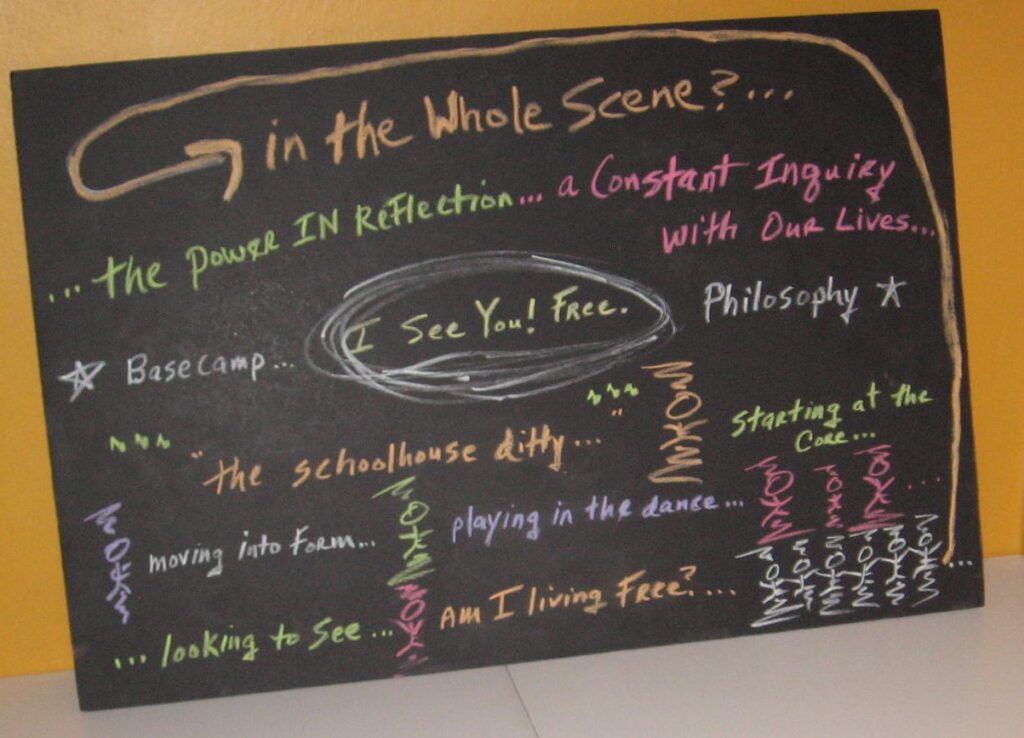 in the Whole Scene?...
...the Power IN Reflection... a Constant Inquiry
With Our Lives...
I See You! Free.
Philosophy
Basecamp...
"the schoolhouse ditty..."
Starting at the
Core...
moving into Form...
playing in the dance...
...looking to See...
Am I living Free?...